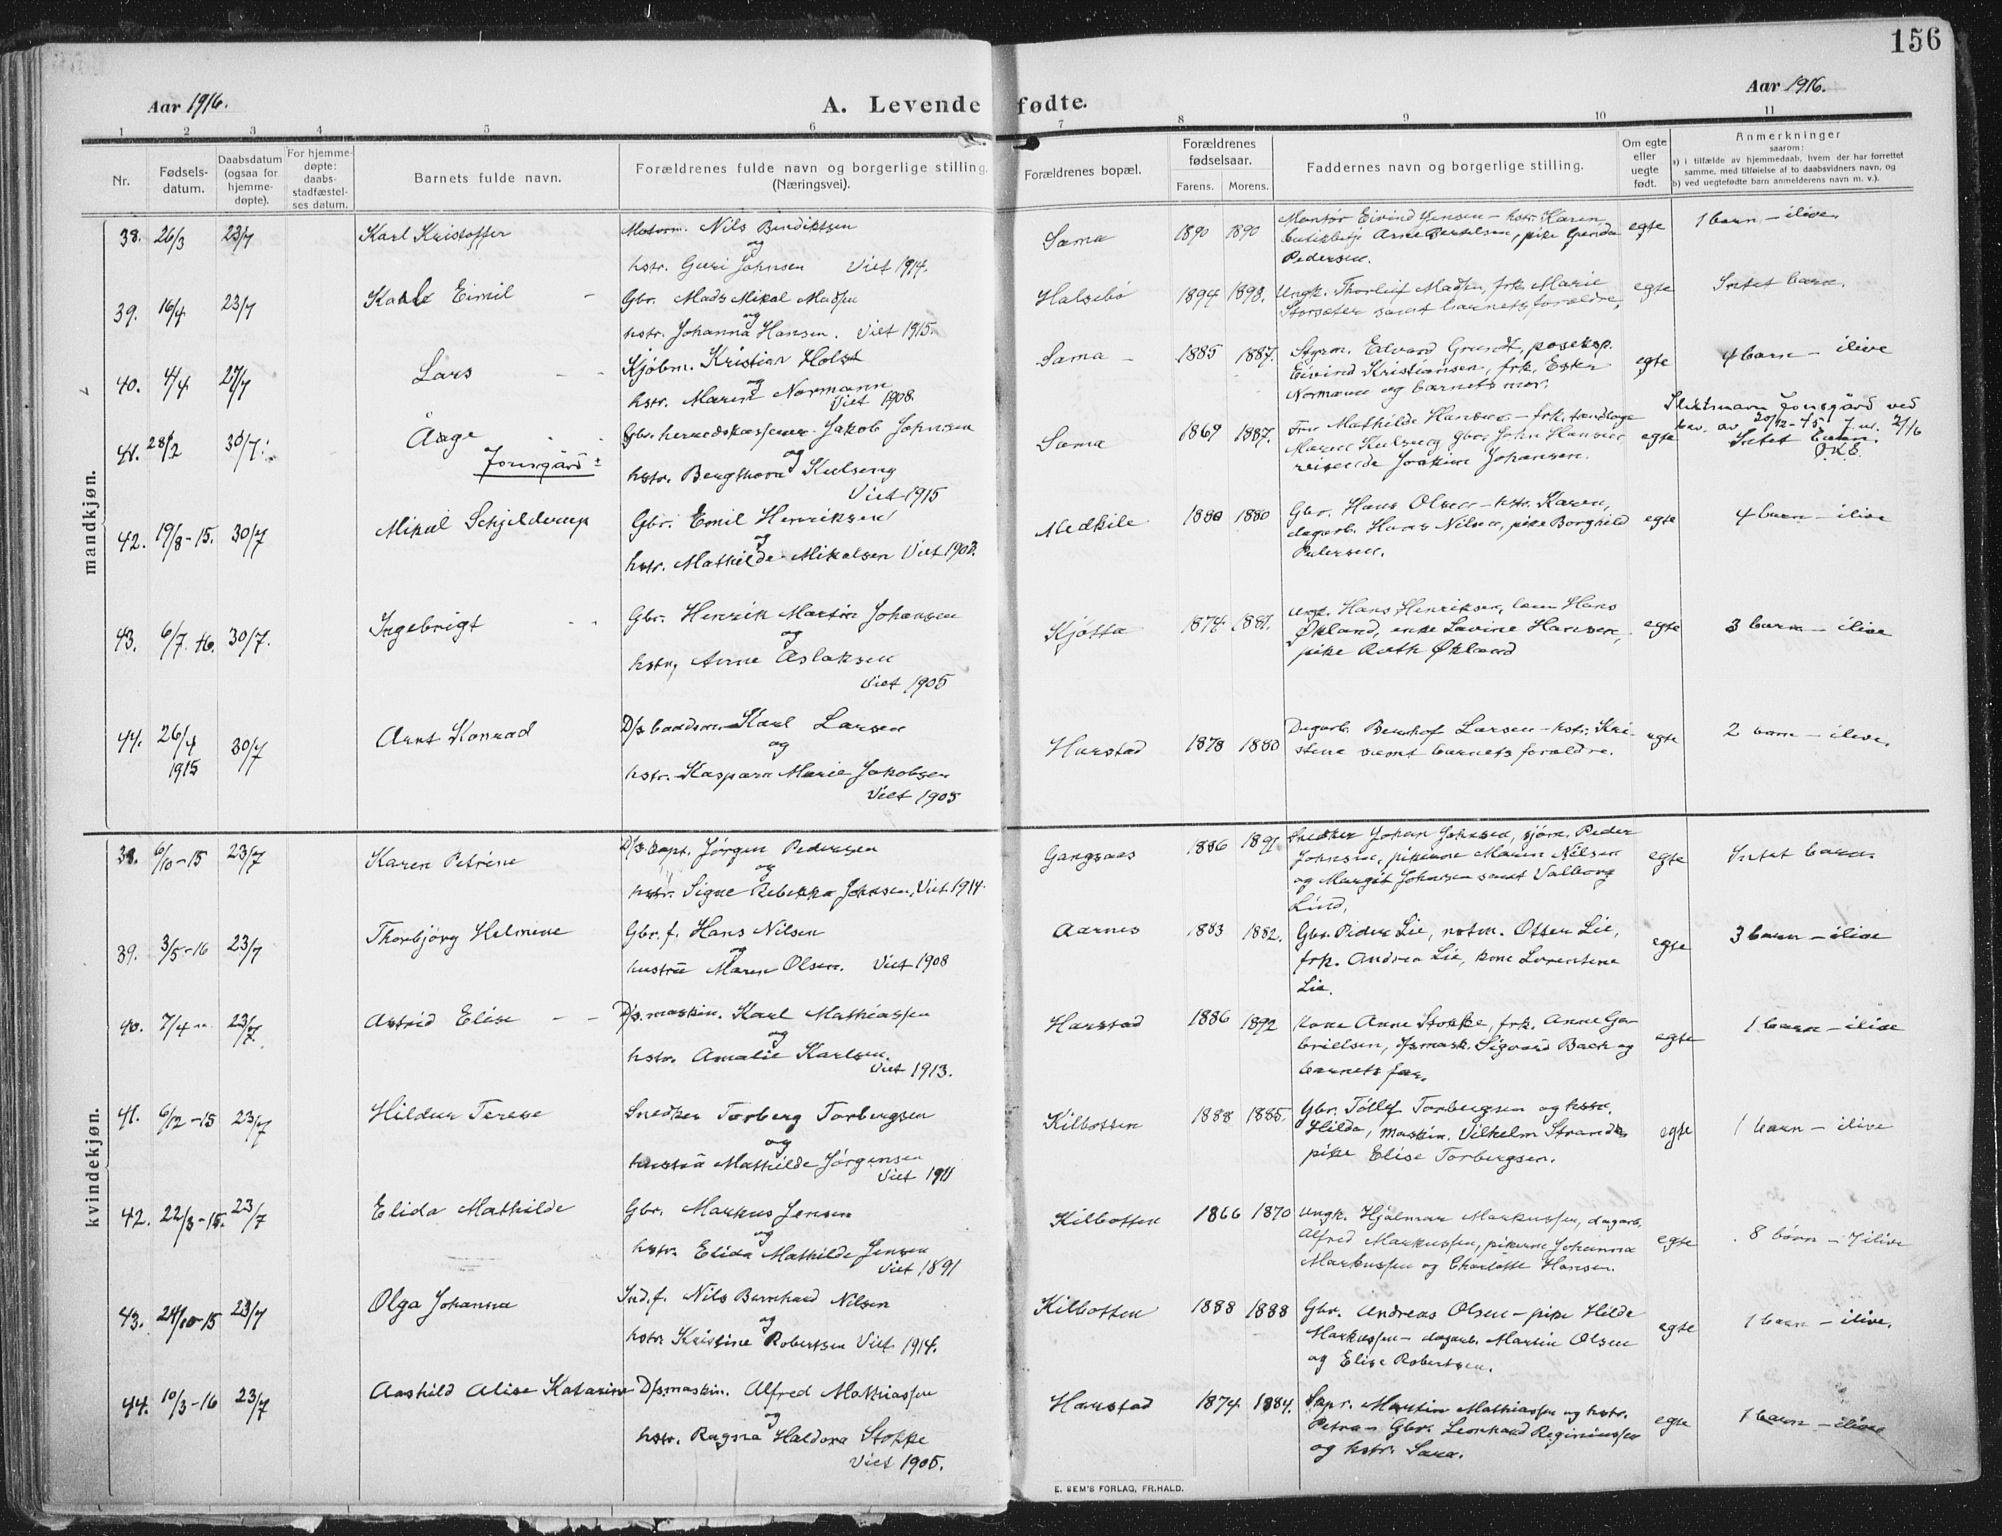 156
Aar 1916.
A. Levende fødte.
Aar 1916.
1 2 3 4 5 6 7 8 9 10 11
Nr.
Fødsels-
datum.
Daabsdatum
(ogsaa for
hjemme-
døpte).
For hjemme-
døpte:
daabs-
stadfæstel-
ses datum.
Barnets fulde navn.
Forældrenes fulde navn og borgerlige stilling.
(Næringsvei).
Forældrenes bopæl.
Forældrenes
fødselsaar.
Farens. Morens.
Faddernes navn og borgerlige stilling.
Om egte
eller
uegte
født.
Anmerkninger
saarom:
a) i tilfælde av hjemmedaab, hvem der har forrettet
samme, med tilføielse af to daabsvidners navn, og
b) ved uegtefødte barn anmelderens navn m. v.).
mandkjøn.
38. 26/3 23/7 Karl Kristoffer
Nils Bendiktsen
og
hstr. Guri Johnsen Viet 1914.
Sama 1890 1890
Montör Eivind Jensen – hstr. Karen
Arne Bertelsen, pike Gerda
Pedersen.
egte 1 barn – ilive
39. 16/4 23/7 Eimil
Gbr. Mads Mikal Madsen
og
hstr. Johanna Hansen. Viet 1915
Halsebö 1894 1893.
Ungk. Thorleif Madsen, frk. Marie
Storsæter samt barnets forældre.
egte Intet barn.
40. 4/4 27/7 Lars
Kjøbm. Kristian Holst
og
hstr. Maren Normann
Viet 1908
Sama 1885 1887.
Styrm. Edvard Grundt, postexp.
Eivind Kristiansen, frk. Ester
Normann og barnets mor.
egte 4 barn – ilive
41. 28/2 30/7. Åage
Jonsgård
Gbr. herredskasserer Jakob Johnsen
og
hstr. Bergthora Kulseng
Viet 1915
Sama 1869 1887.
Fru Mathilde Hansen – frk. tandlæge
Maren Kulseng Gbr. John Hansen
reisende Joakim Johansen.
egte
Slektsnavn Jonsgård ved
bev. av 20/12-45. J.nr. 2/16
Intet barn.
42. 19/8-15. 30/7 Mikal Schjelderup
Gbr. Emil Henriksen
og
hstr. Mathilde Mikalsen Viet 1902.
Medkile 1880 1880
Gbr. Hans Olsen – hstr. Karen,
dagarb. Hans Nilsen, pike Borghild
Pedersen.
egte 4 barn – ilive
43. 6/7 16. 30/7. Ingebrigt
Gbr. Henrik Martin Johansen
og
hstr. Anne Aslaksen
Viet 1905
Kjøtta 1874 1881.
Ungk. Hans Henriksen, Hans
Økland, enke Lavine Hansen,
pike Ruth Økland
egte 3 barn – ilive
44. 26/4 30/7 Arnt Konrad
1915
D/s baadsm. Karl Larsen
og
hstr. Kaspara Marie Jakobsen
Viet 1905
Harstad 1878 1880
Dagarb. Larsen – hstr. Kri-
stene samt barnets forældre.
egte 2 barn – ilive.
kvindekjøn.
38. 6/10-15 23/7 Karen Petrine
D/s. capt. Jörgen Pedersen
og
hstr. Signe Rebekka Johnsen, Viet 1914.
Gangsaas 1886 1891
Snedker Johan Johnsen, sjöm. Peder
Johnsen, pikerne Maren Nilsen
og Margit Johnsen samt Valborg
Lind.
egte Intet barn.
39. 3/5-16 23/7 Thorbjörg Helmine
Gbr. f. Hans Nilsen
og
hustru Maren Olsen. Viet 1908
Aarnes 1883 1882.
Gbr. Peder Lie, notm. Otter Lie,
frk. Andrea Lie, kone Lorentine
Lie.
egte 3 barn – ilive
40. 7/4 „ 23/7. Astrid Elise
D/s. maskin. Karl Mathiassen
og
hstr. Amalie Karlsen.
Viet 1913.
Harstad 1886 1892
Kone Anne Stokke, frk. Anne Ga-
brielsen, D/smask. Sigvard Back og
barnets far.
egte 1 barn – ilive
41. 6/12-15 23/7 Hildur Terese
Snedker Torberg Torbergsen
og
hustru Mathilde Jörgensen
Viet 1911
Kilbotten 1888 1885.
Gbr. Tollef Torbergsen og hstr.
Hilda, maskin. Vilhelm Strand
pike Elise Torbergsen.
egte 1 barn – ilive
42. 22/3-15. 23/7 Elida Mathilde
Gbr. Markus Jensen
og
hstr. Elida Mathilde Jensen
Viet 1891
Kilbotten 1866 1870
Ungk. Hjalmar Markussen, dagarb.
Alfred Markussen, pikerne Johanna
Markussen og Charlotte Hansen.
egte 8 börn – 7 ilive
43. 24/10-15 23/7 Olga Johanna
Ind. f. Nils Bernhard Nilsen
og
hstr. Kristine Robertsen Viet 1914.
Kilbotten 1888 1888
Gbr. Andreas Olsen – pike Hilda
Markussen – dagarb. Martin Olsen
og Elise Robertsen.
egte 1 barn – ilive.
44. 10/3-16 23/7 Aashild Alise Katarine
D/smaskin. Alfred Mathiassen
og
hstr. Ragna Haldora Stokke
Viet 1905.
Harstad 1874 1884.
Martin Mathiassen og hstr.
Petra – Gbr. Leonhard Reginiussen
og hstr. Sara.
egte 1 barn – ilive
E. SEM'S FORLAG, FR.HALD.